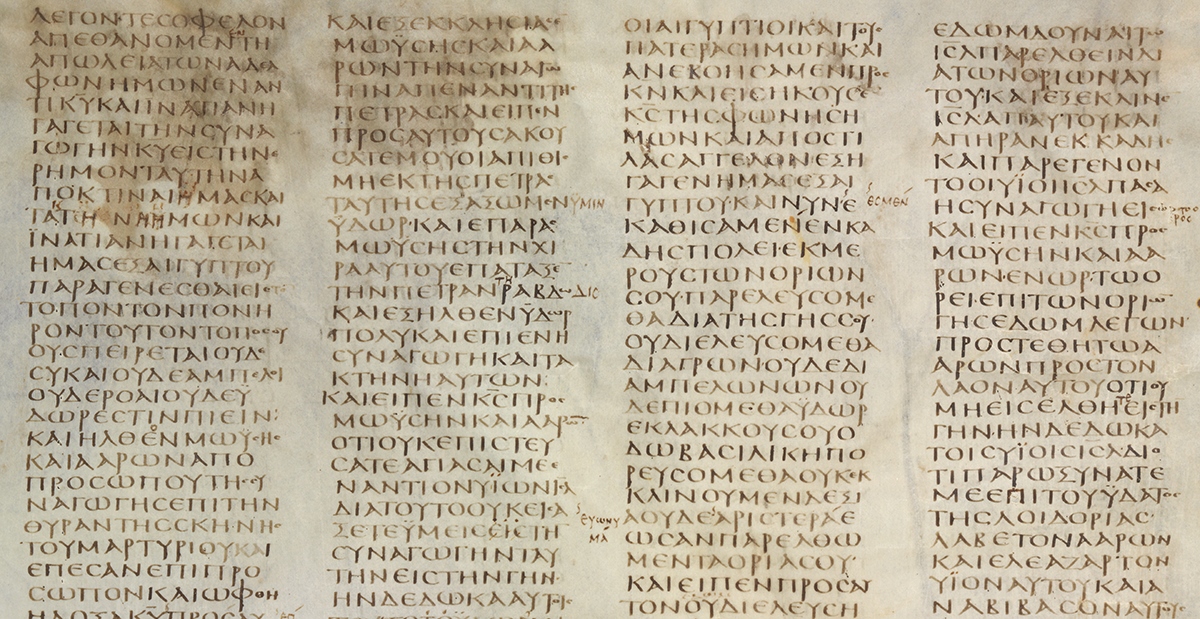 ΛΕΓΟΝΤΕСΟΦΕΛΟΝ
ΑΠΕΘΑΝΟΜΕΝΤΗ
ΑΠΩΛΕΙΑΤΩΝΑΔΕΛ
ΦΩΝΗΜΩΝΕΝΑΝ
ΤΙΚΥΚΑΙΙΝΑΤΙΑΝΗ
ΓΑΓΕΤΑΙΤΗΝСΥΝΑ
ΓΩΓΗΝΚΥΕΙСΤΗΝΕ
ΡΗΜΟΝΤΑΥΤΗΝΑ
ΠΟΚΤΙΝΑΙΗΜΑСΚΑΙ
ΤΑΚΤΗΝΗΗΜΩΝΚΑΙ
ΪΝΑΤΙΑΝΗΓΑΓΕΤΑΙ
ΗΜΑСΕΞΑΙΓΥΠΤΟΥ
ΠΑΡΑΓΕΝΕСΘΑΙΕΙС
ΤΟ·ΠΟΝΤΟΝΠΟΝΗ
ΡΟΝΤΟΥΤΟΝΤΟΠΟСΟΥ
ΟΥ·СΠΕΙΡΕΤΑΙΟΥΔΕ
СΥΚΑΙΟΥΔΕΑΜΠΕΛΟΙ
ΟΥΔΕΡΟΑΙΟΥΔΕΥ
ΔΩΡΕСΤΙΝΠΙΕΙΝ:
ΚΑΙΗΛΘΕΝΜΩΫСΗС
ΚΑΙΑΑΡΩΝΑΠΟ
ΠΡΟСΩΠΟΥΤΗССΥ
ΝΑΓΩΓΗСΕΠΙΤΗΝ
ΘΥΡΑΝΤΗССΚΗΝΗС
ΤΟΥΜΑΡΤΥΡΙΟΥΚΑΙ
ΕΠΕСΑΝΕΠΙΠΡΟ
СΩΠΟΝΚΑΙΩΦΘΗ
ΚΑΙΕΞΕΚΚΛΗСΙΑСΕ
ΜΩΫСΗСΚΑΙΑΑ
ΡΩΝΤΗΝСΥΝΑΓΩ
ΓΗΝΑΠΕΝΑΝΤΙΤΗС
ΠΕΤΡΑСΚΑΙΕΙΠΕΝ
ΠΡΟСΑΥΤΟΥСΑΚΟΥ
СΑΤΕΜΟΥΟΙΑΠΙΘΙС
ΜΗΕΚΤΗСΠΕΤΡΑС
ΤΑΥΤΗСΕΞΑΞΩΜΕΝΥΜΙΝ
ΫΔΩΡ·ΚΑΙΕΠΑΡΑС
ΜΩΫСΗСΤΗΝΧΙ
ΡΑΑΥΤΟΥΕΠΑΤΑΞΕ
ΤΗΝΠΕΤΡΑΝΤΗΡΑΒΔΩΔΙС
ΚΑΙΕΞΗΛΘΕΝΥΔΩΡ
ΠΟΛΥΚΑΙΕΠΙΕΝΗ
СΥΝΑΓΩΓΗΚΑΙΤΑ
ΚΤΗΝΗΑΥΤΩΝ:
ΚΑΙΕΙΠΕΝΚСΠΡΟС
ΜΩΥСΗΝΚΑΙΑΑΡΩ
ΟΤΙΟΥΚΕΠΙСΤΕΥ
СΑΤΕΑΓΙΑСΑΙΜΕΕ
ΝΑΝΤΙΟΝΥΪΩΝΙΗΛ
ΔΙΑΤΟΥΤΟΟΥΚΕΙСΑ
ΞΕΤΕΥΜΕΙСΕΙСΤΗ
СΥΝΑΓΩΓΗΝΤΑΥ
ΤΗΝΕΙСΤΗΝΓΗΝ
ΗΝΔΕΔΩΚΑΑΥΤΟΙС
ΟΙΑΙΓΥΠΤΙΟΙΚΑΙΤΟΥС
ΠΑΤΕΡΑСΗΜΩΝΚΑΙ
ΑΝΕΒΟΗСΑΜΕΝΠΡΟС
ΚΝΚΑΙΕΙСΗΚΟΥСΕ
ΚСΤΗСΦΩΝΗСΗ
ΜΩΝΚΑΙΑΠΟСΤΙ
ΛΑСΑΓΓΕΛΟΝΕΞΗ
ΓΑΓΕΝΗΜΑСΕΞΑΙ
ΓΥΠΤΟΥΚΑΙΝΥΝΕ ΕСΜΕΝ
ΚΑΘΙСΑΜΕΝΕΝΚΑ
ΔΗСΠΟΛΕΙΕΚΜΕ
ΡΟΥСΤΩΝΟΡΙΩΝ
СΟΥ·ΠΑΡΕΛΕΥСΟΜΕ
ΘΑΔΙΑΤΗСΓΗССΟΥ·
ΟΥΔΙΕΛΕΥСΟΜΕΘΑ
ΔΙΑΓΡΩΝΟΥΔΕΔΙ
ΑΜΠΕΛΩΝΩΝΟΥ
ΔΕΠΙΟΜΕΘΑΫΔΩΡ
ΕΚΛΑΚΚΟΥСΟΥΟ
ΔΩΒΑСΙΛΙΚΗΠΟ
ΡΕΥСΟΜΕΘΑΟΥΚΕΚ
ΚΛΙΝΟΥΜΕΝΔΕΞΙ
ΑΟΥΔΕΑΡΙСΤΕΡΑΕ ΕΥΩΝΥΜΑ
ΩСΑΝΠΑΡΕΛΘΩ
ΜΕΝΤΑΟΡΙΑСΟΥ·
ΚΑΙΕΙΠΕΝΠΡΟСΑΥ
ΤΟΝΟΥΔΙΕΛΕΥСΗ
ΕΔΩΜΔΟΥΝΑΙΤΩ
ΙСΛΠΑΡΕΛΘΕΙΝΔΙ
ΑΤΩΝΟΡΙΩΝΑΥ
ΤΟΥ·ΚΑΙΕΞΕΚΛΙΝΕ
ΙСΛΑΠΑΥΤΟΥΚΑΙ
ΑΠΗΡΑΝΕΚΚΑΔΗС
ΚΑΙΠΑΡΕΓΕΝΟΝ
ΤΟΟΙΥΪΟΙΙСΛΠΑСΑ
ΗСΥΝΑΓΩΓΗΕΙС
ΚΑΙΕΙΠΕΝΚСΠΡΟС
ΜΩΫСΗΝΚΑΙΑΑ
ΡΩΝ·ΕΝΩΡ·ΤΩΟ
ΡΕΙΕΠΙΤΩΝΟΡΙΩΝ
ΓΗСΕΔΩΜΛΕΓΩΝ
ΠΡΟСΤΕΘΗΤΩΑ
ΑΡΩΝΠΡΟСΤΟΝ
ΛΑΟΝΑΥΤΟΥΟΤΙΟΥ
ΜΗΕΙСΕΛΘΗΤΕΕΙСΤΗ
ΓΗΝ·ΗΝΔΕΔΩΚΑ
ΤΟΙСΥΪΟΙСΙСΛΔΙΟ
ΤΙΠΑΡΩΞΥΝΑΤΕ
ΜΕΕΠΙΤΟΥΫΔΑΤΟС
ΤΗСΛΟΙΔΟΡΙΑС·
ΛΑΒΕΤΟΝΑΑΡΩΝ
ΚΑΙΕΛΕΑΖΑΡΤΟΝ
ΥΪΟΝΑΥΤΟΥΚΑΙΑ
ΝΑΒΙΒΑСΟΝΑΥΤΟΥС